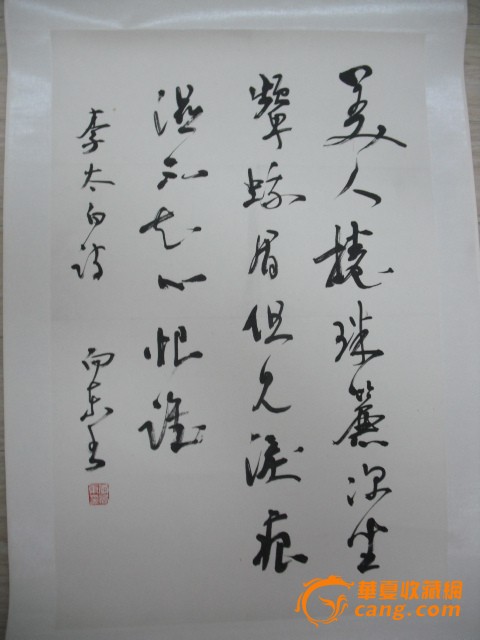 美人捲珠簾深坐
顰蛾眉但見淚痕
湿不知心恨誰
李太白詩
華夏收藏網
cang.com